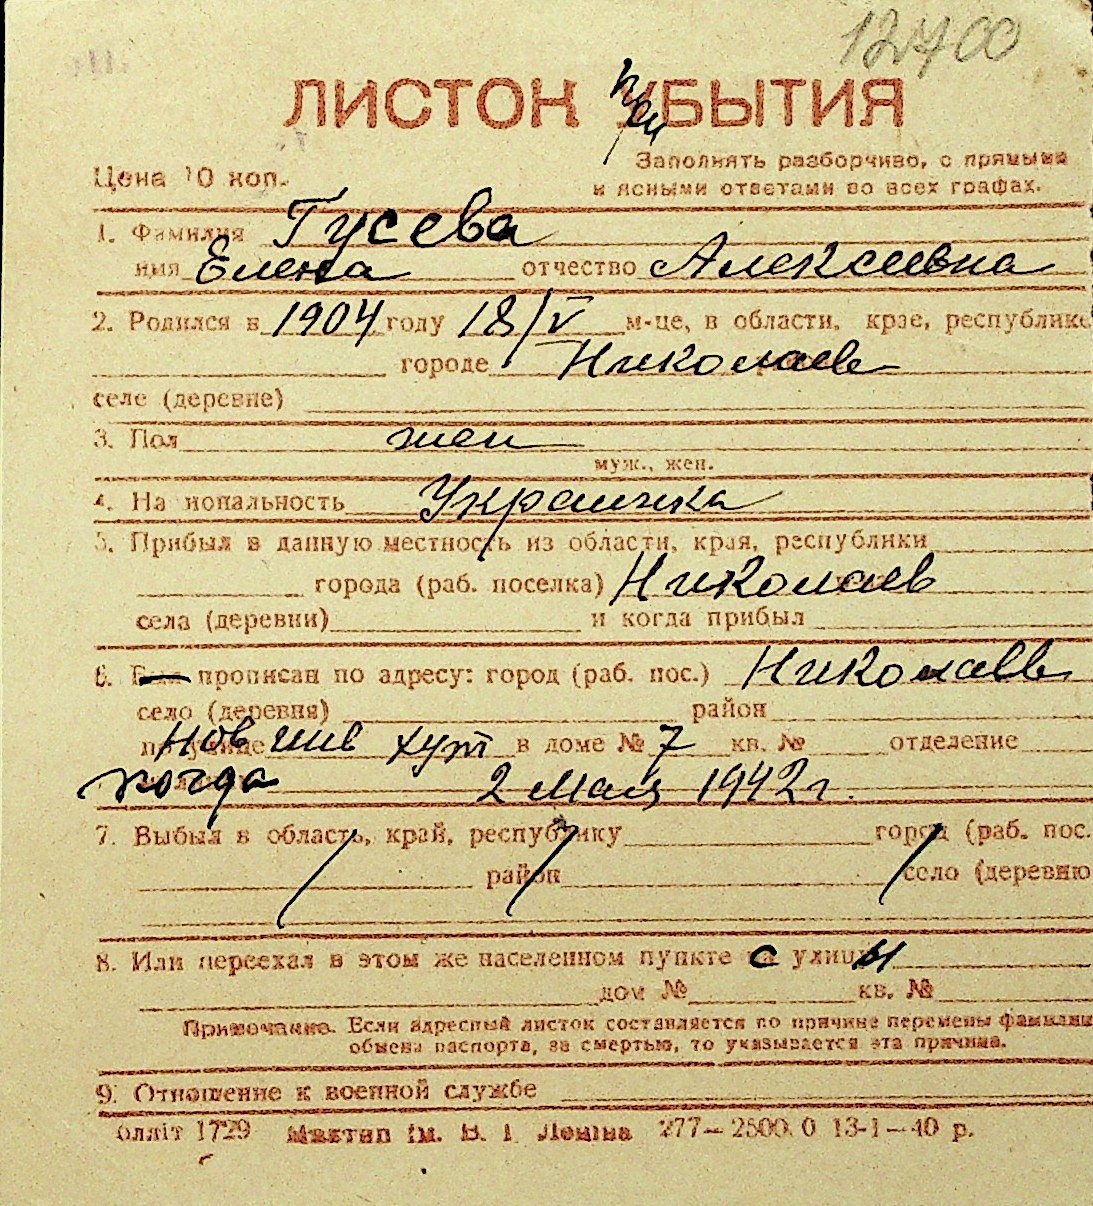 12700
ЛИСТОК УБЫТИЯ
при
Цена 10 коп.
Заполнять разборчиво, с прямыми
и ясными ответами во всех графах.
1. Фамилия Гусева
имя Елена отчество Алексеевна
2. Родился в 1904 году 18/V м-це, в области, крае, республике
городе Николаев
селе (деревне)
3. Пол жен
муж., жен.
4. Национальность Украинка
5. Прибыл в данную местность из области, края, республики
города (раб. поселка) Николаев
села (деревни) и когда прибыл
6. прописан по адресу: город (раб. пос.) Николаев
село (деревня) район
Нов хут в доме № 7 кв. № отделение
когда 2 мая 1942 г.
7. Выбыл в область, край, республику город (раб. пос.
район село (деревню
8. Или переехал в этом же населенном пункте с улицы
дом № кв. №
Примечание. Если адресный листок составляется по причине перемены фамилии
обмена паспорта, за смертью, то указывается эта причина.
9. Отношение к военной службе
блліт 1729 Миктип ім. В. І. Леніна 277—2500.0 13-1—40 р.